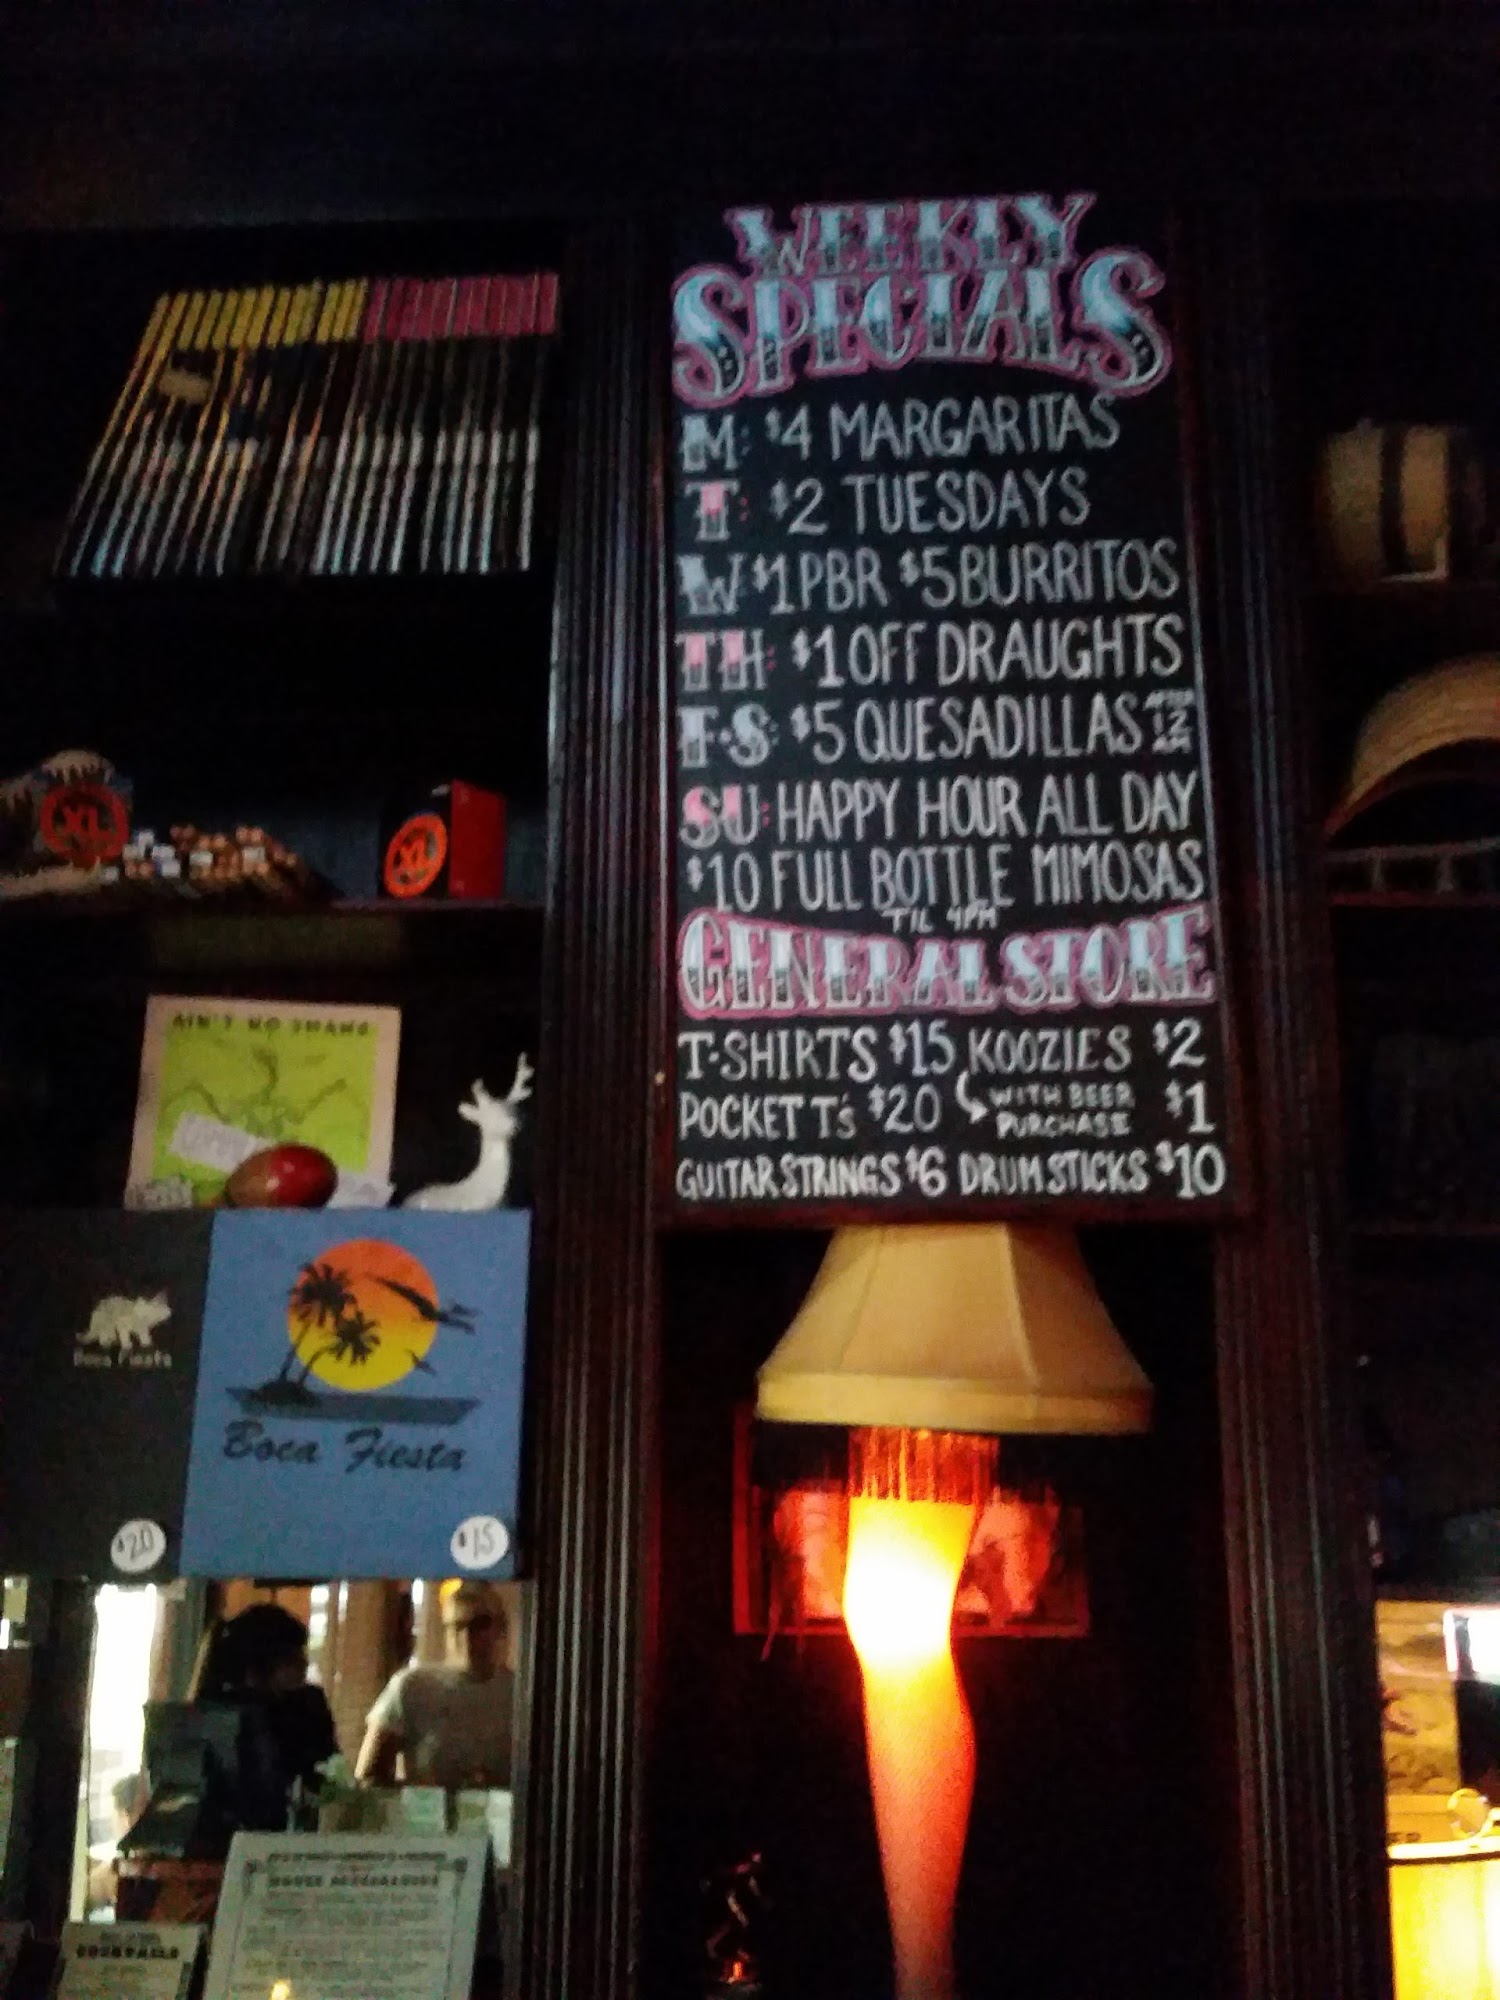 WEEKLY
SPECIALS
M: $4 MARGARITAS
T: $2 TUESDAYS
W $1 PBR $5 BURRITOS
TH: $1 OFF DRAUGHTS
F-S: $5 QUESADILLAS AFTER 12 AM
SU: HAPPY HOUR ALL DAY
$10 FULL BOTTLE MIMOSAS
TIL 4PM
GENERAL STORE
T-SHIRTS $15 KOOZIES $2
POCKET T's $20 WITH BEER PURCHASE $1
GUITAR STRINGS $6 DRUM STICKS $10
XL
XL
AIN'T NO THANG
Boca Fiesta
$20
Boca Fiesta
$15
COCKTAILS